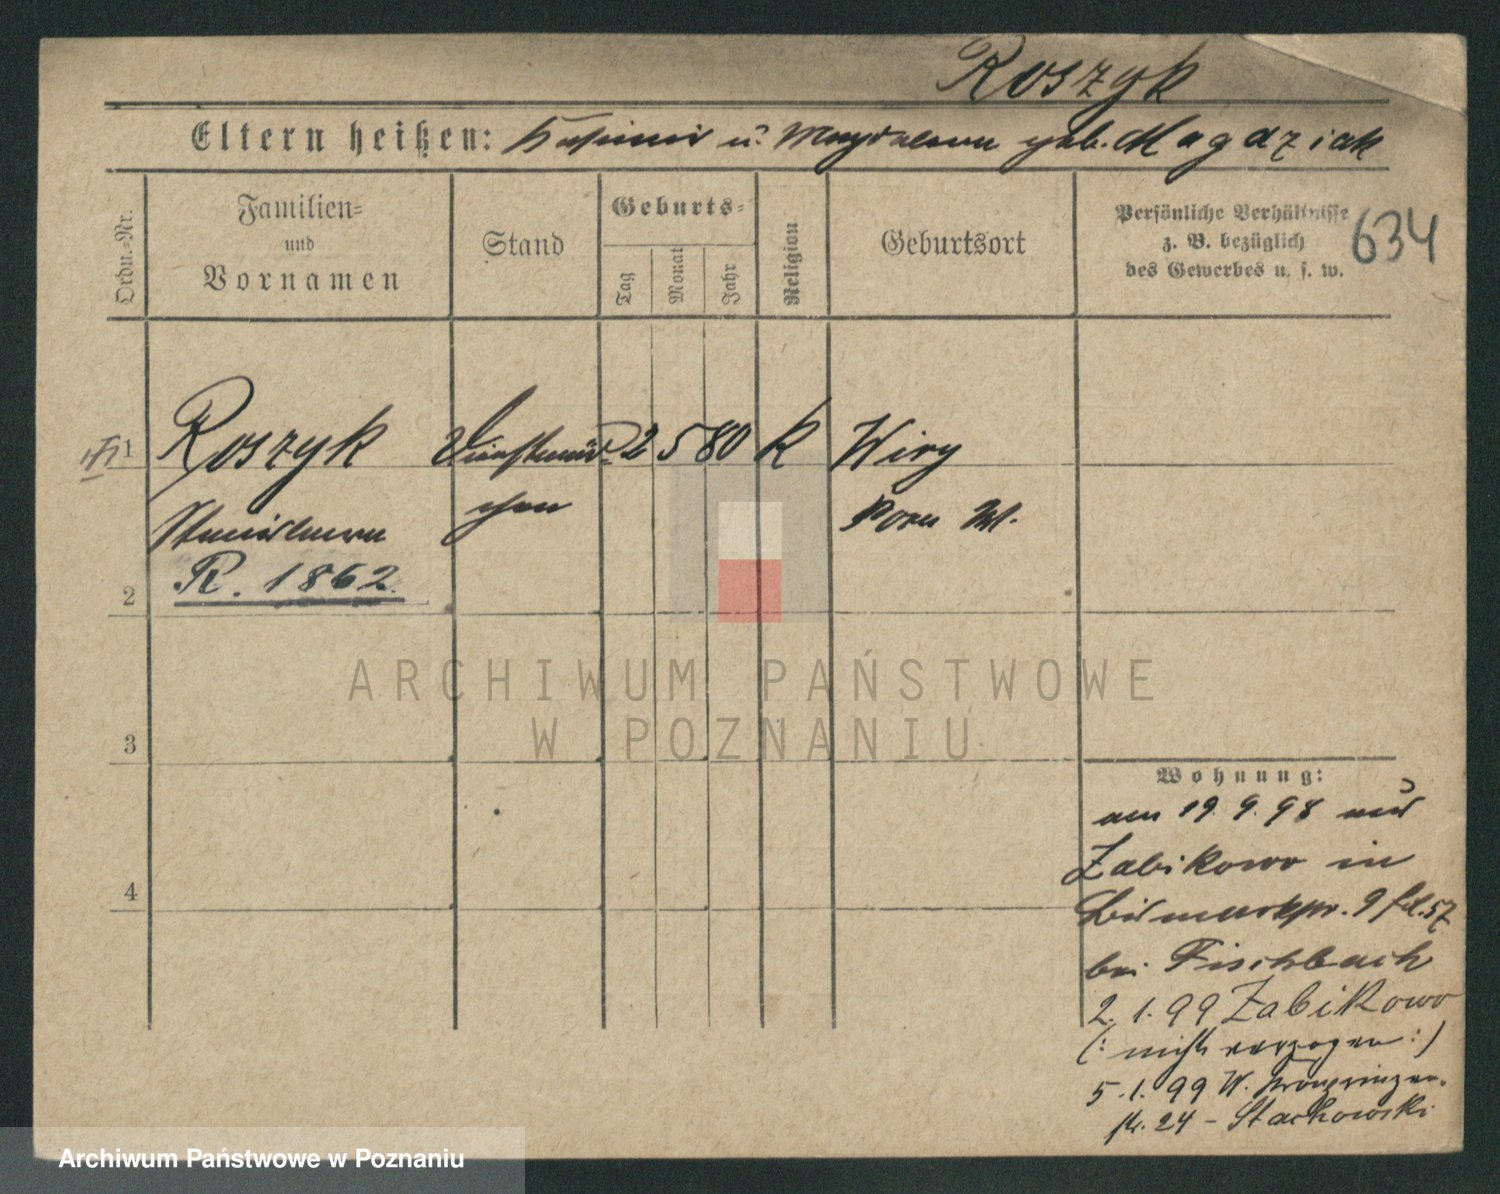 Roszyk
Eltern heißen: Kasimir u. Magdalena geb. Magdziak
Ordn.-Nr.
Familien-
und
Vornamen
Stand
Geburts-
Tag
Monat
Jahr
Religion
Geburtsort
Persönliche Verhältnisse
z. B. bezüglich
des Gewerbes u. s. w.
634
1 Roszyk Dienstmäd- 2 5 80 K Wiry
Stanislawa chen Posen W.
R. 1862.
2
3
4
ARCHIWUM PAŃSTWOWE
W POZNANIU
Wohnung:
am 19. 9. 98 aus
Zabikowo in
Bismarckstr. 9
bei Fischbach
2. 1. 99 Zabikowo
(: nicht verzogen :)
5. 1. 99 W. Kronprinzen-
str. 24 - Stachowski
Archiwum Państwowe w Poznaniu